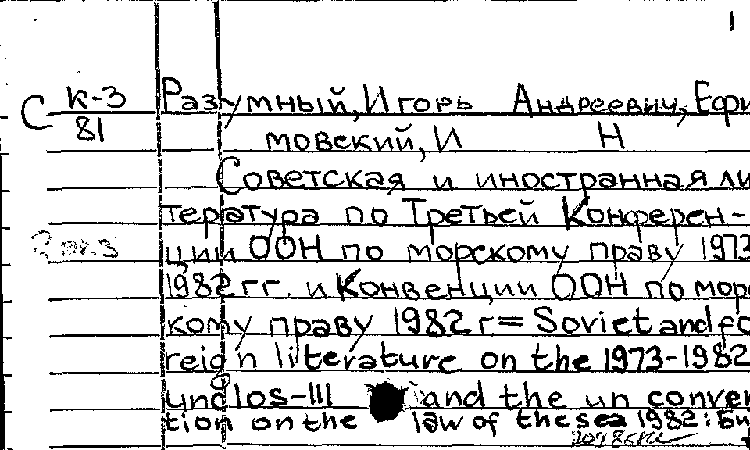 1
С к-3 Разумный, Игорь Андреевич, Ефи
81
мовский, И Н
Советская и иностранная ли
тература по Третьей Конферен-
ции ООН по морскому праву 1973
1982 гг. и Конвенции ООН по морс
кому праву 1982 г = Soviet and fo
reign literature on the 1973-1982
unclos-III and the un conven
tion on the law of the sea 1982: Би